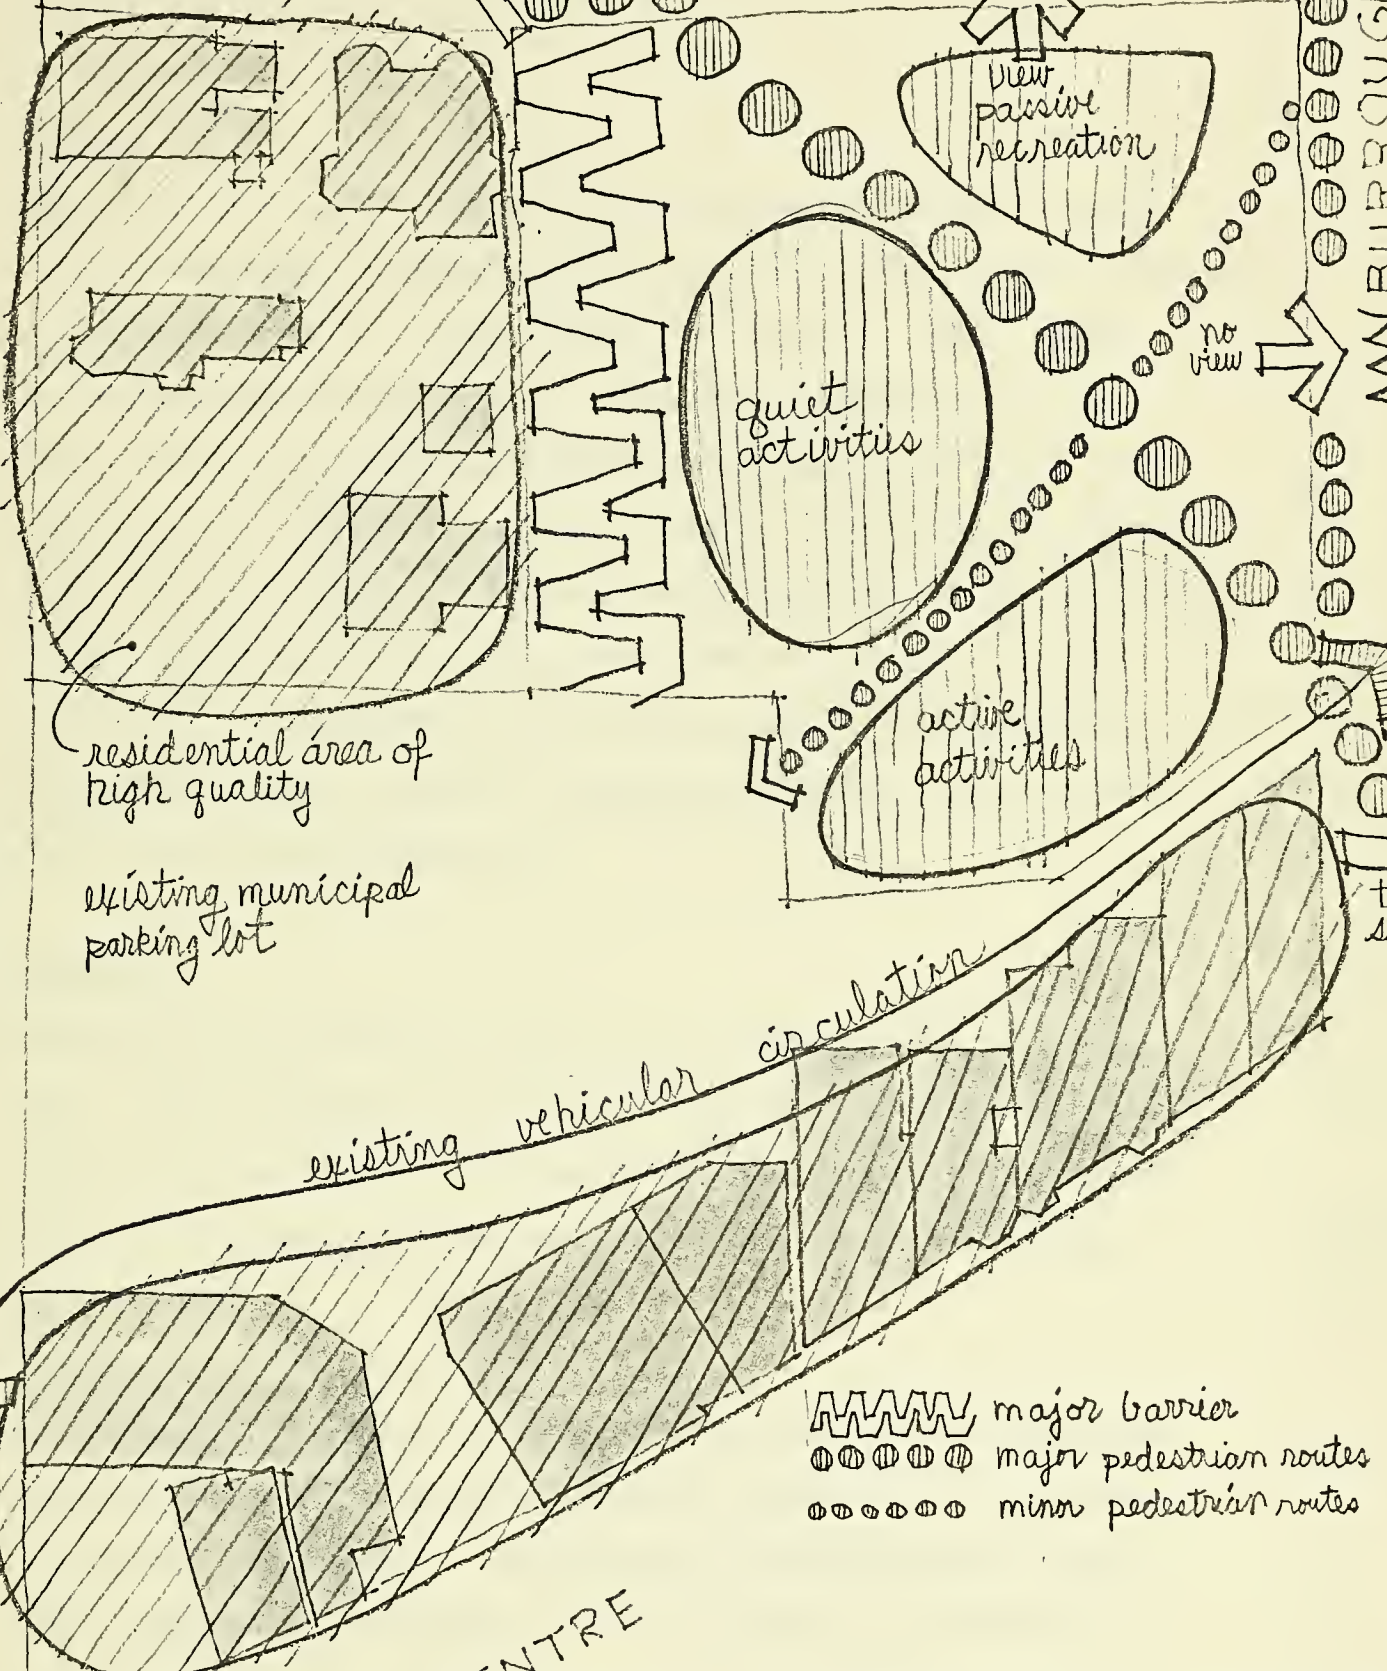 view
passive
recreation
no
view
quiet
activities
active
activities
residential area of
high quality
existing municipal
parking lot
existing vehicular circulation
major barrier
major pedestrian routes
minor pedestrian routes